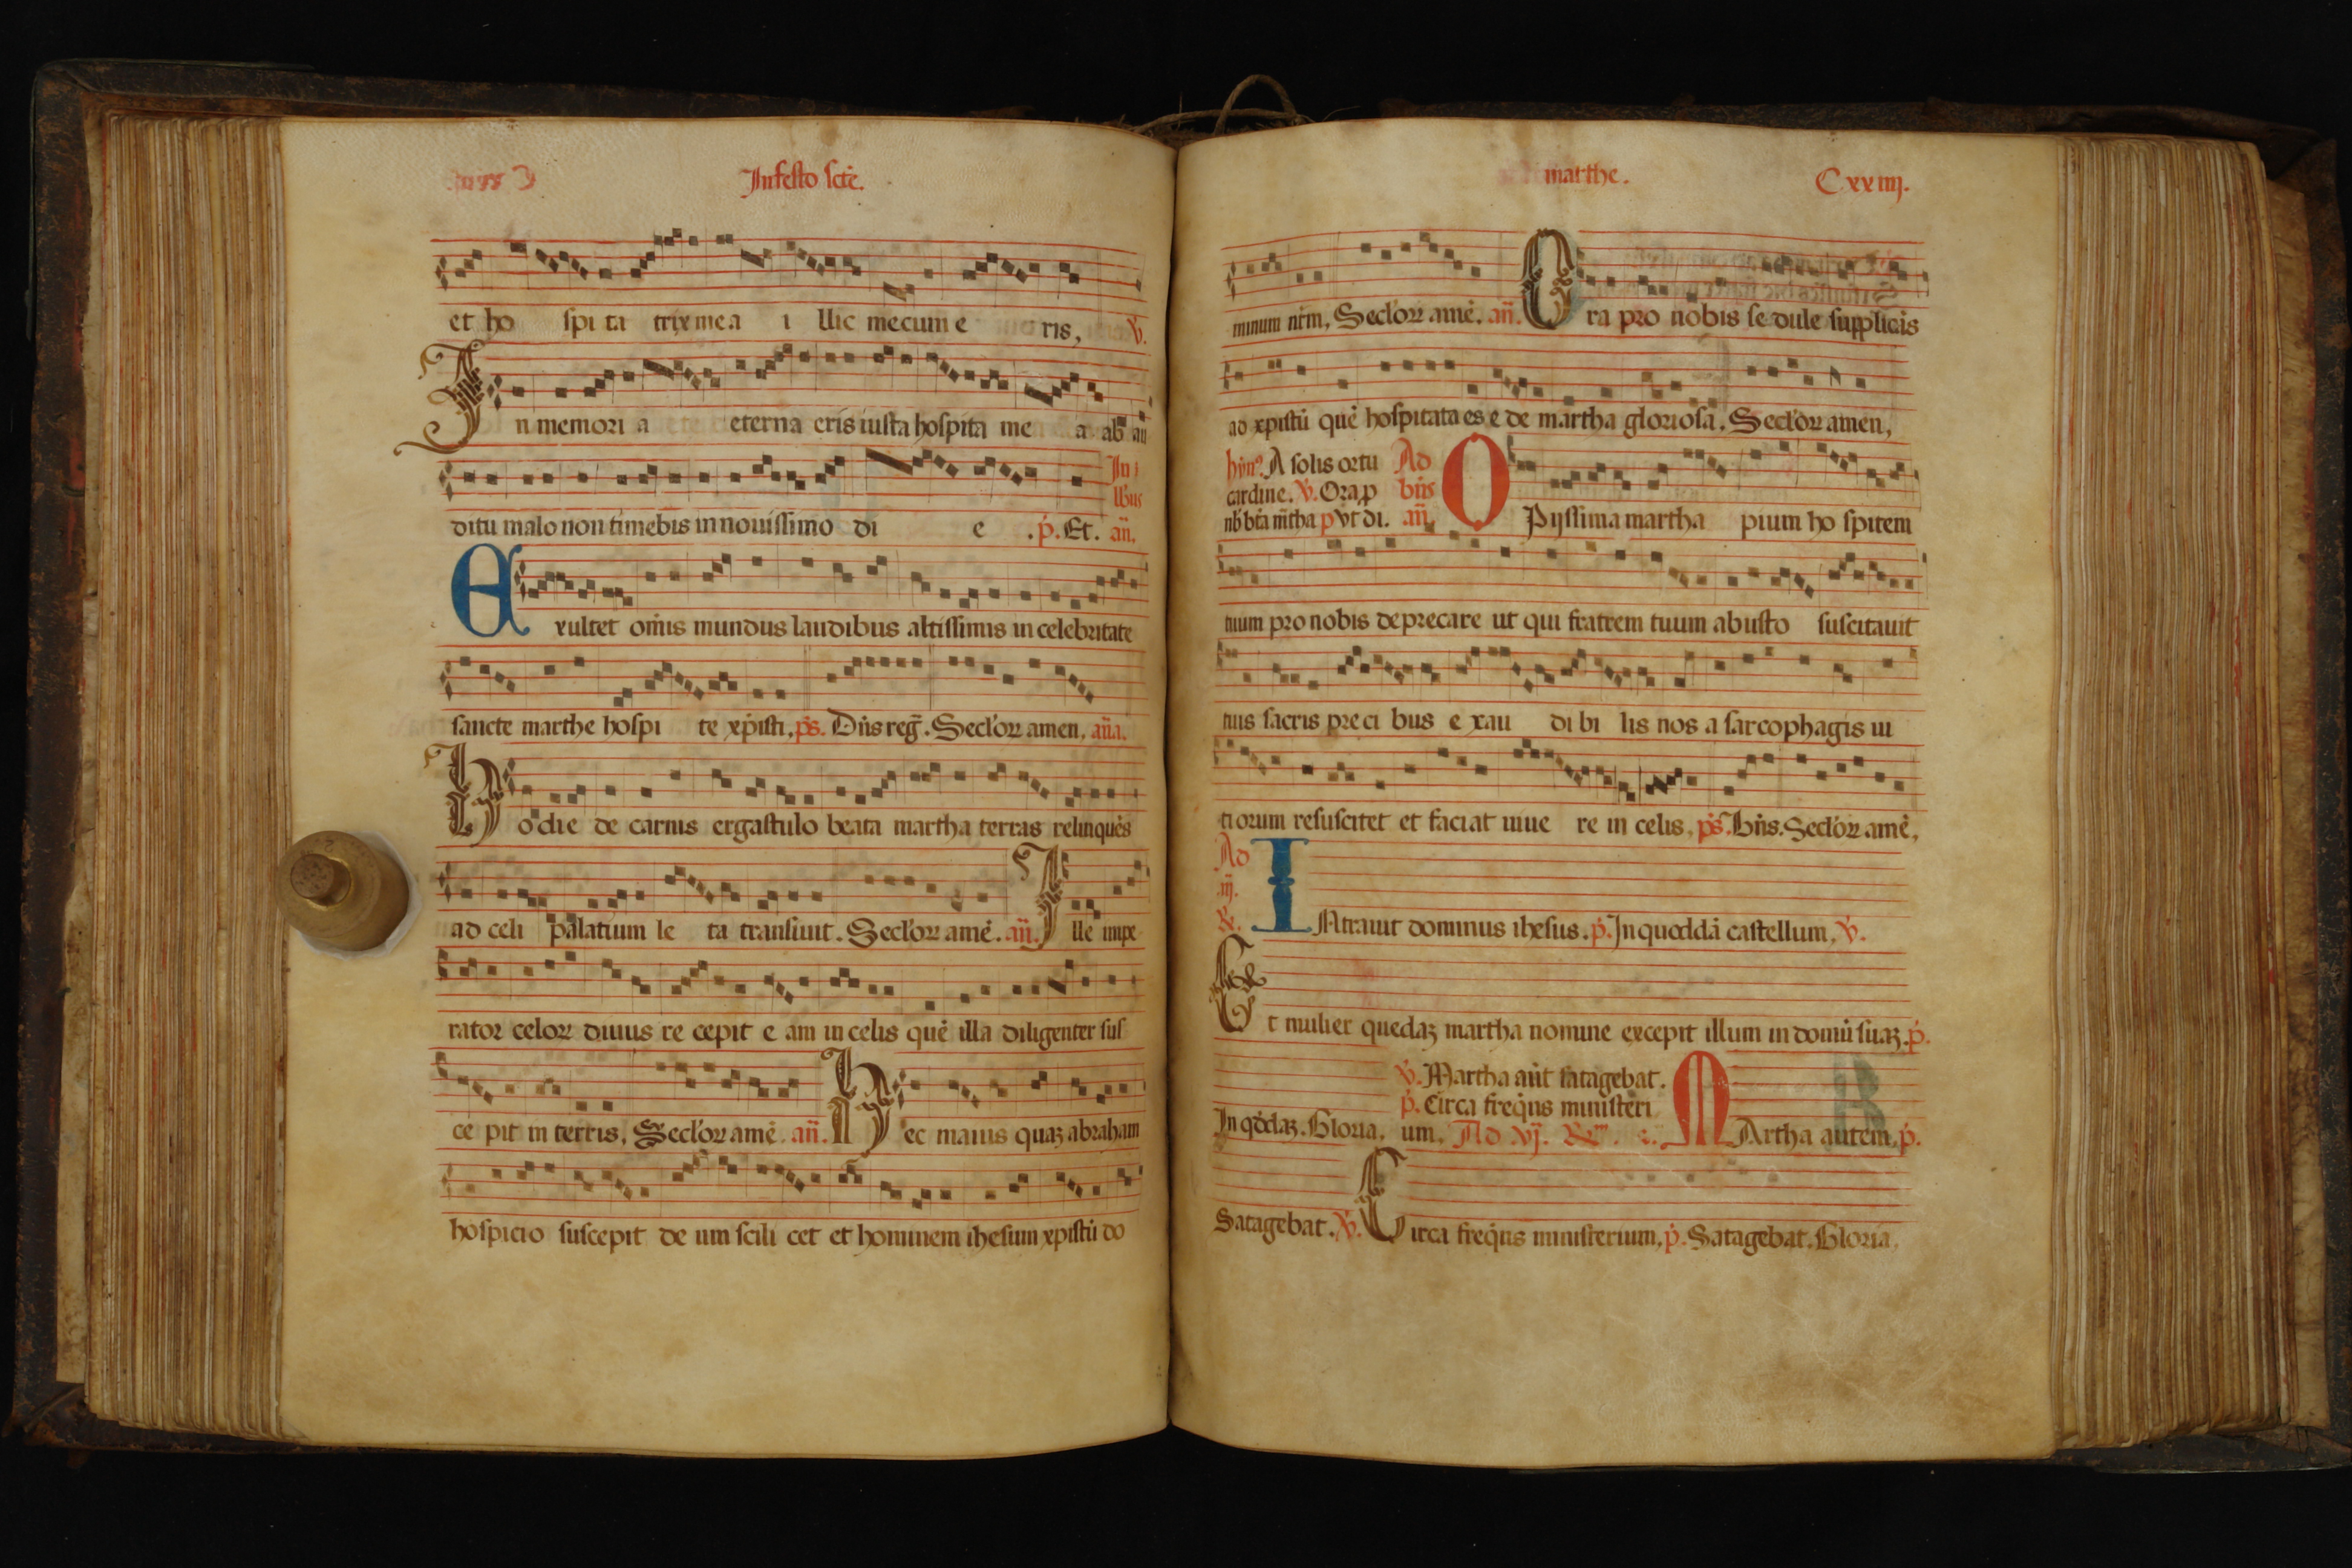 Infesto scē.
et ho spi ta trix mea i llic mecum e ris, ℣.
In memori a eterna eris iusta hospita me a ab au
In j
lbus
ditu malo non timebis in nouissimo di e . p. Et. añ.
Exultet om̄is mundus laudibus altissimis in celebritate
sancte marthe hospi te xp̄isti. ps. Dn̄s reḡ. Secloꝝ amen. an̄a.
Hodie de carnis ergastulo beata martha terras relinquēs
ad celi palatium le ta transiuit. Secloꝝ amē. añ. Ille impe
rator celoꝝ diuus re cepit e am in celis quē illa diligenter sus
ce pit in terris. Secloꝝ amē. añ. Hec maius quaꝫ abraham
hospicio suscepit de um scili cet et hominem ihesum xpistū do
marthe. Cxxiiij.
minum nr̄m. Secloꝝ amē. añ. Ora pro nobis se dule supplicās
ad xpistū quē hospitata es e de martha gloriosa. Secloꝝ amen,
hȳn⁹. A solis ortu Ad
cardine. ℣. Ora p bn̄s
nb̄ bt̄a m̄tha p vt di. añ. O Pijssima martha pium ho spitem
tuum pro nobis deprecare ut qui fratrem tuum a busto suscitauit
tuis sacris preci bus e xau di bi lis nos a sarcophagis ui
tiorum resuscitet et faciat uiue re in celis. ps. Bn̄s. Secloꝝ amē,
Ad
iij.
℞. INtrauit dominus ihesus. p. In quoddā castellum, ℣.
Et mulier quedaꝫ martha nomine excepit illum in domū suaꝫ. p.
℣. Martha aūt satagebat.
p. Circa freq̄ns ministeri
In qd̄daꝫ. Gloria. um. Ad vj. ℞ MArtha autem. p.
Satagebat. ℣. Circa freq̄ns ministerium. p. Satagebat. Gloria.